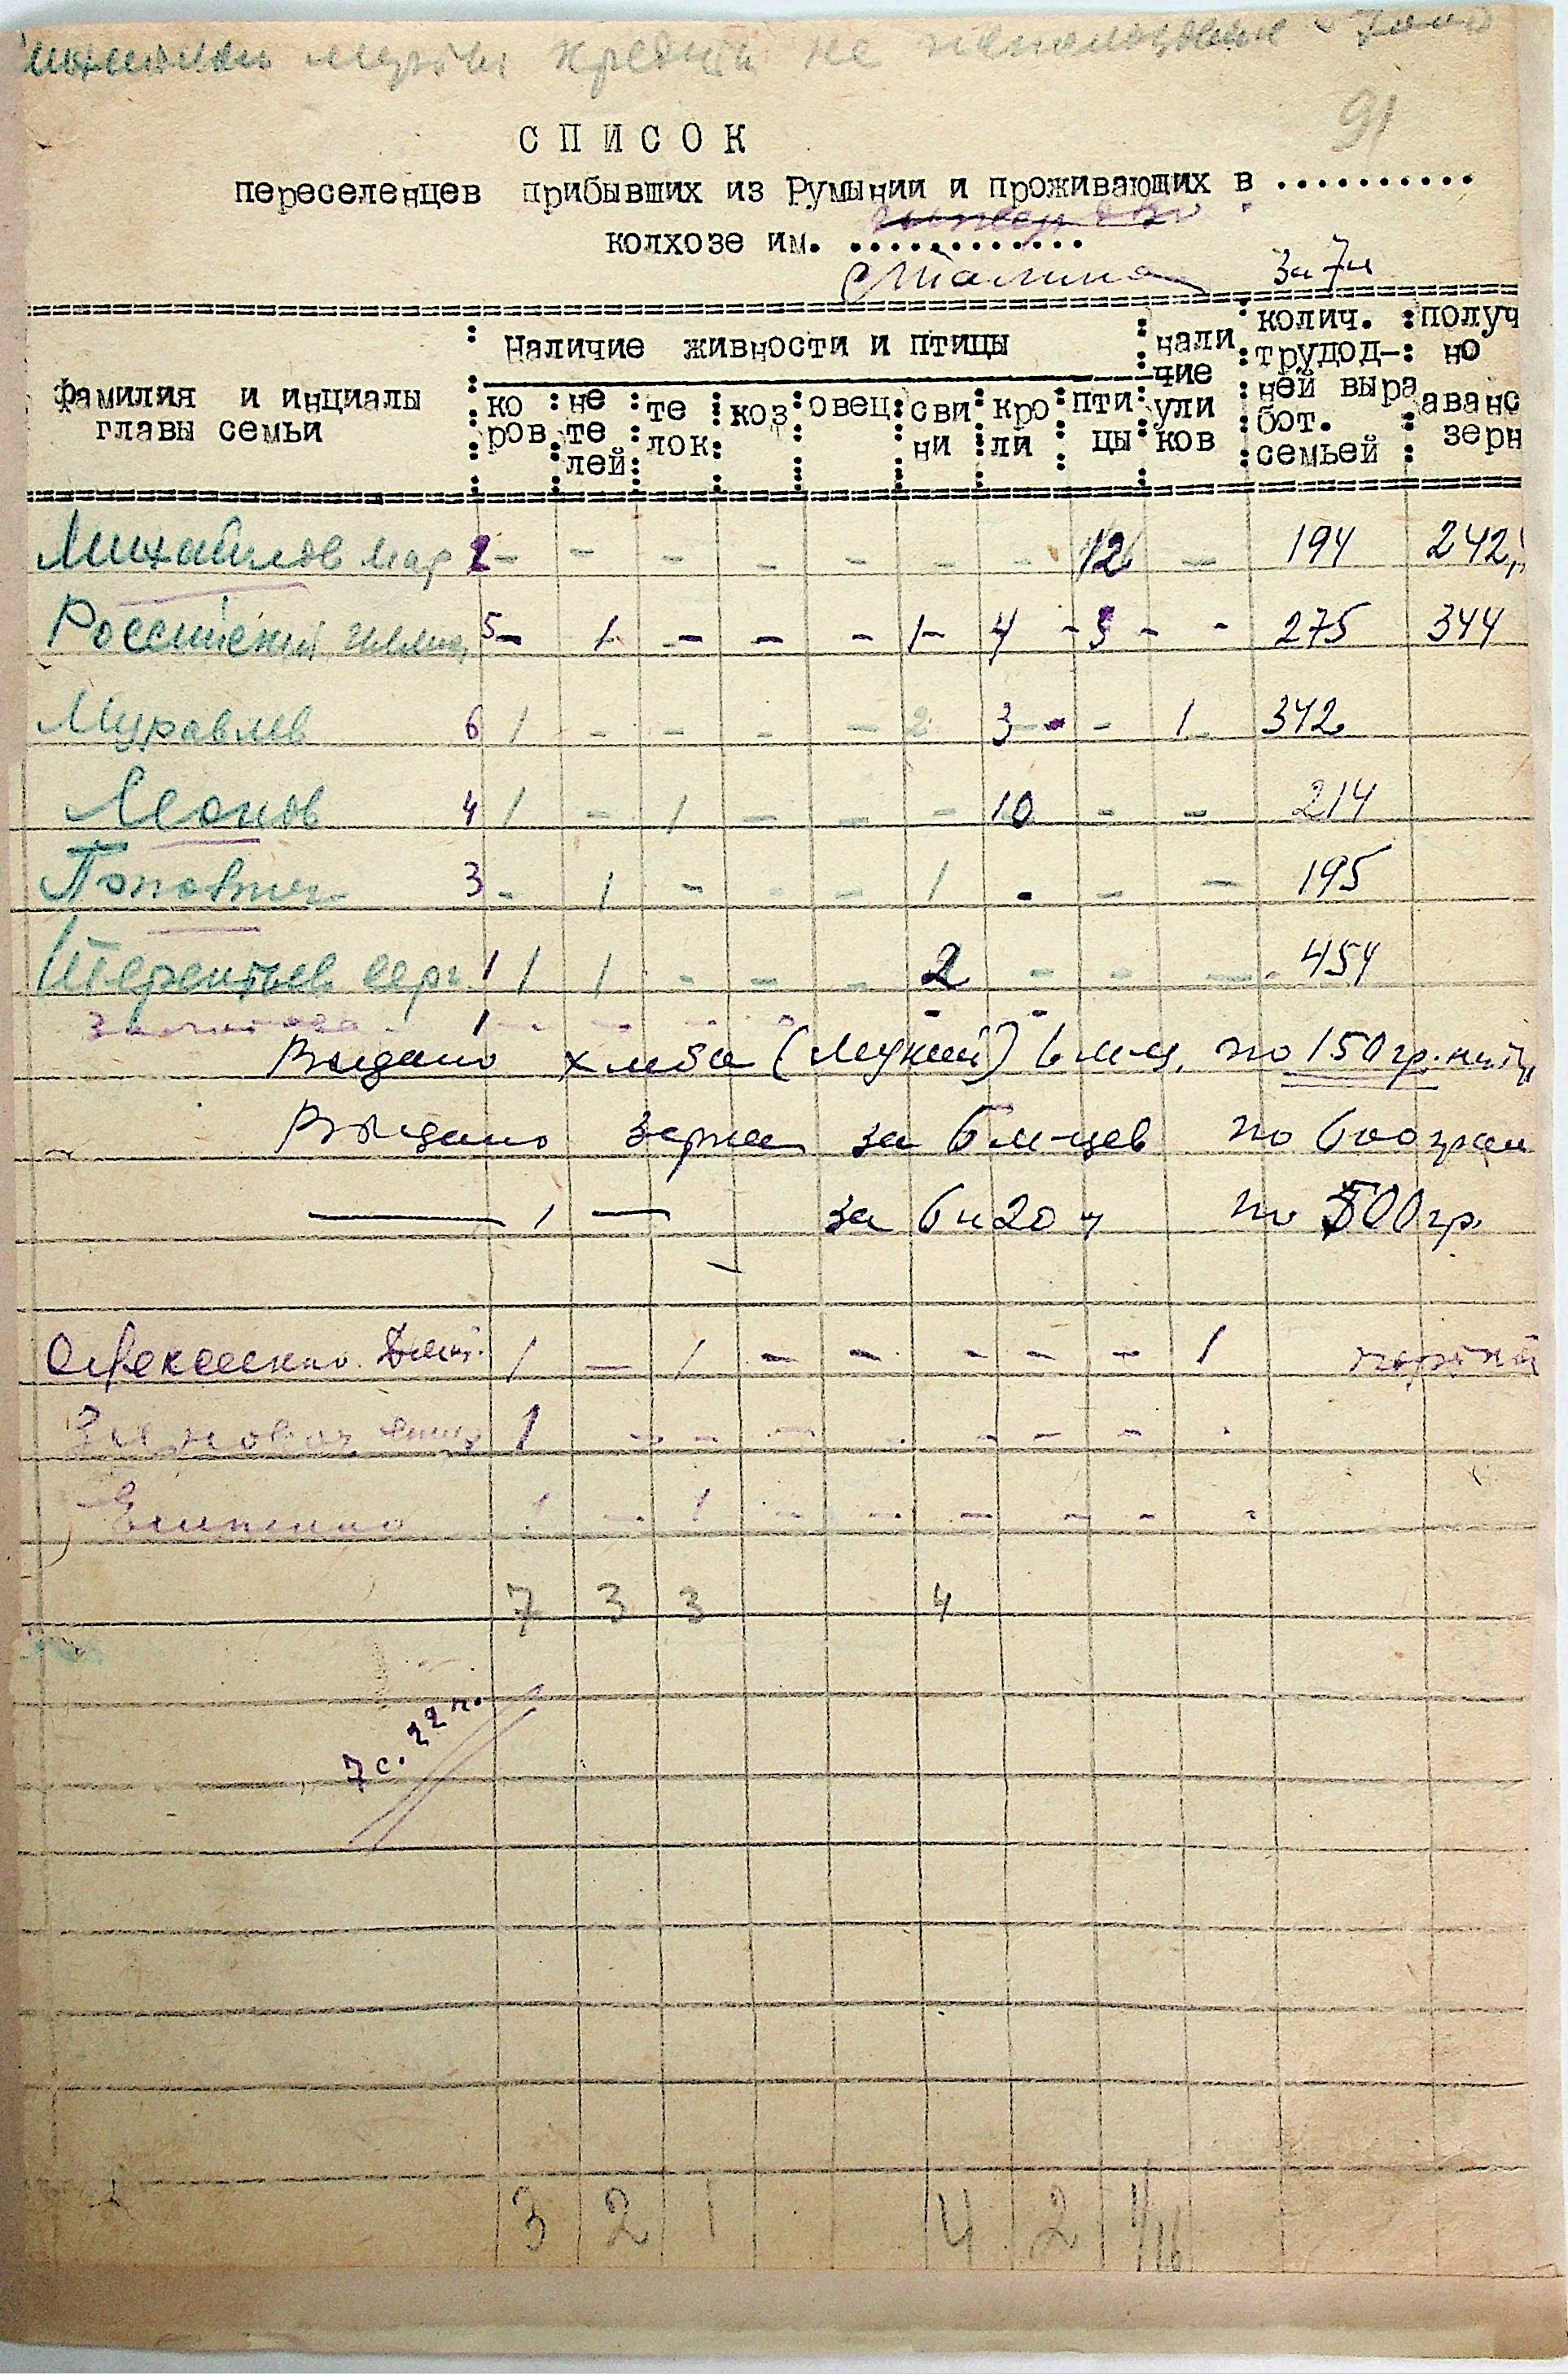 кредит не использован
91
СПИСОК
переселенцев прибывших из Румынии и проживающих в ..........
колхозе им. ............
Сталина за 7 м
Фамилия и инциалы главы семьи : Наличие живности и птицы : наличие уликов : колич. трудод-ней выработ. семьей : получ но аванс зерн
коров : нетелей : телок : коз : овец : свини : кроли : птицы
Михайлов Мар 2 - - - - - - - 12 - 194 242,
Российский 5 - 1 - - - 1 - 4 - 3 - - 275 344
Муравлев 6 1 - - - - 2 3 - - 1 - 342
Леонов 4 1 - 1 - - - 10 - - 214
Попович 3 - 1 - - - 1 - - - 195
Терентьев Серг. 1 1 1 - - - 2 - - - 454
1 - - - - - -
Выдано хлеба (мукой) 6 м-ц. по 150 гр.
Выдано зерна за 6 м-цев по 600 грам
— 1 — за 6 и 20 по 500 гр.
1 - 1 - - - - - 1
1 - - - - - - - -
Ельненко 1 - 1 - - - - - -
7 3 3 4
7 с. 22 ч.
3 2 1 4 2 1/16